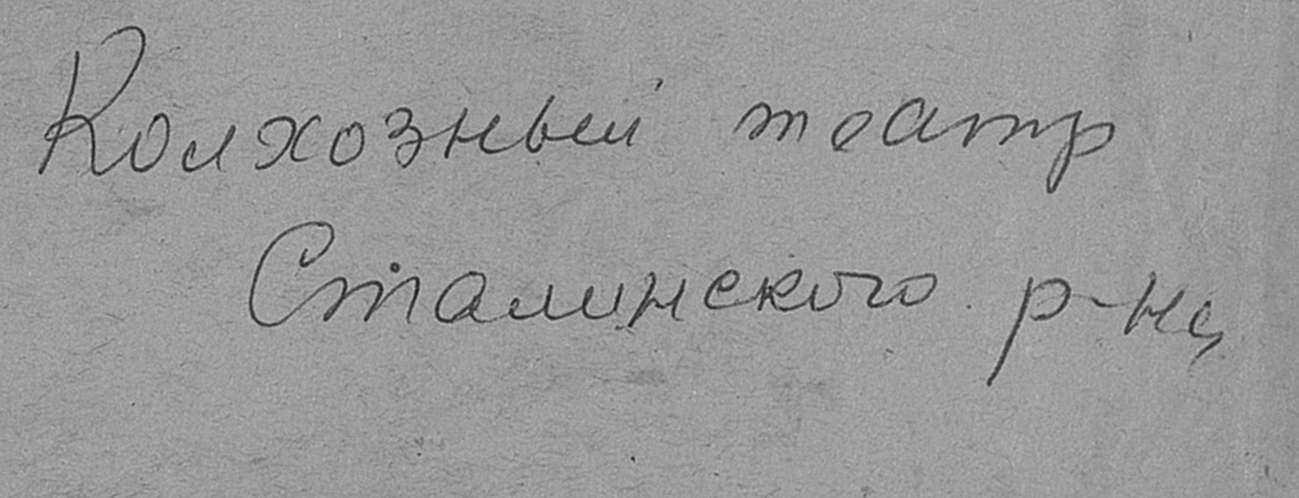 Колхозный театр
Сталинского р-на